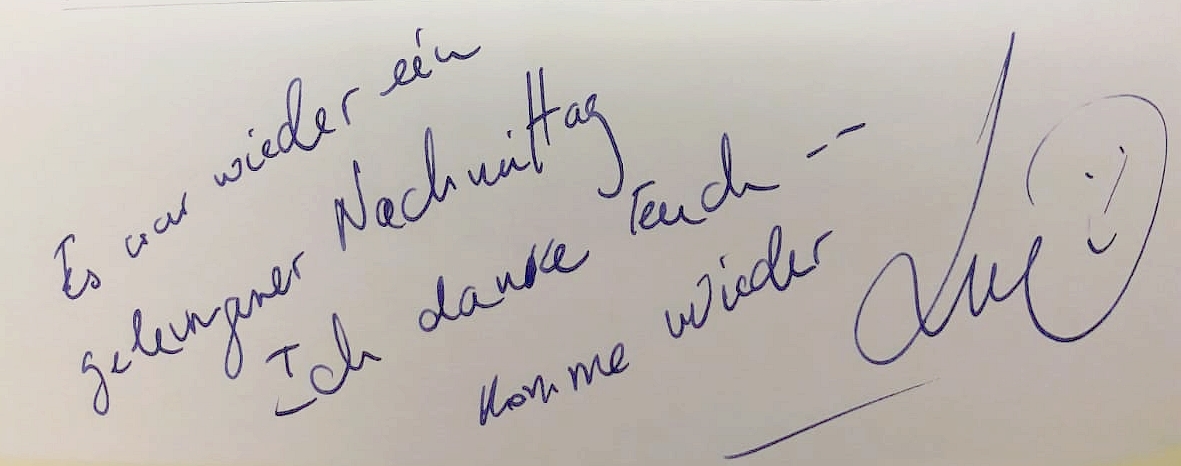 Es war wieder ein
gelungener Nachmittag
Ich danke Euch --
komme wieder